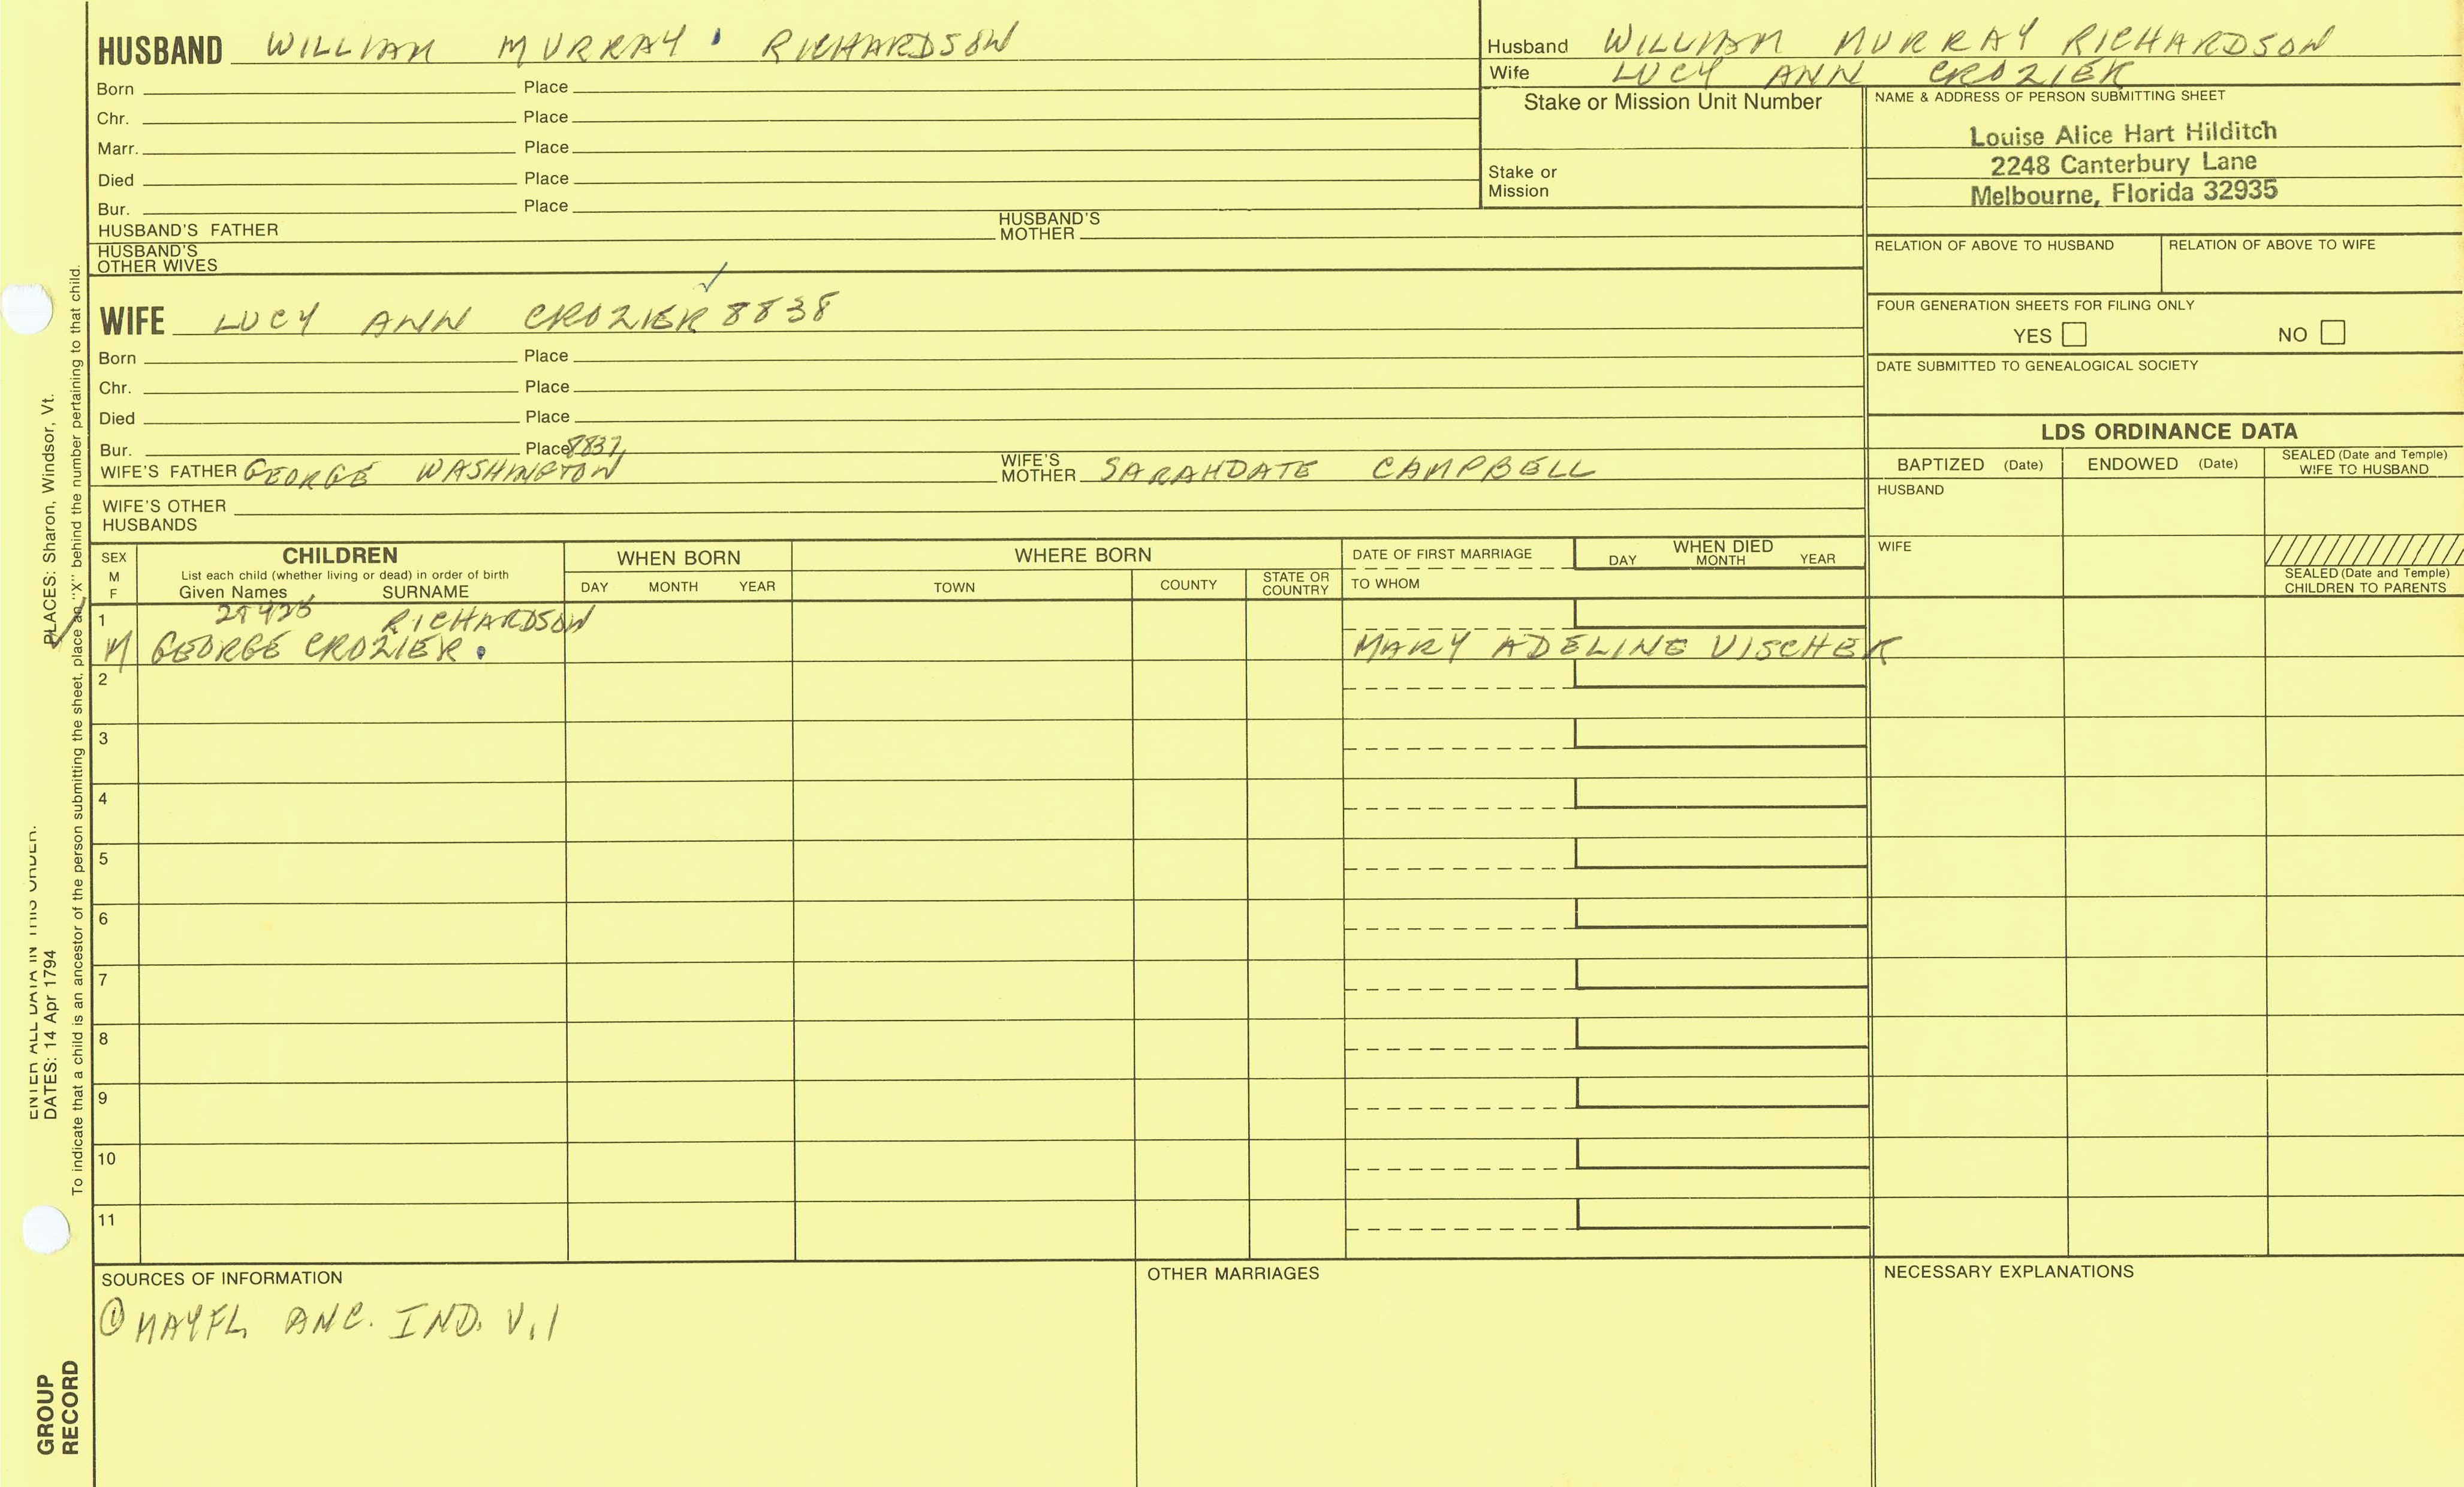 HUSBAND WILLIAM MURRAY RICHARDSON
Born Place
Chr. Place
Marr. Place
Died Place
Bur. Place
HUSBAND'S FATHER HUSBAND'S MOTHER
HUSBAND'S OTHER WIVES
Husband WILLIAM MURRAY RICHARDSON
Wife LUCY ANN CROZIER
Stake or Mission Unit Number
Stake or
Mission
NAME & ADDRESS OF PERSON SUBMITTING SHEET
Louise Alice Hart Hilditch
2248 Canterbury Lane
Melbourne, Florida 32935
RELATION OF ABOVE TO HUSBAND RELATION OF ABOVE TO WIFE
FOUR GENERATION SHEETS FOR FILING ONLY
YES NO
DATE SUBMITTED TO GENEALOGICAL SOCIETY
WIFE LUCY ANN CROZIER 8838
Born Place
Chr. Place
Died Place
Bur. Place 8837
WIFE'S FATHER GEORGE WASHINGTON WIFE'S MOTHER SARAHDATE CAMPBELL
WIFE'S OTHER
HUSBANDS
LDS ORDINANCE DATA
BAPTIZED (Date) ENDOWED (Date) SEALED (Date and Temple) WIFE TO HUSBAND
HUSBAND
WIFE
SEALED (Date and Temple)
CHILDREN TO PARENTS
SEX
M
F
CHILDREN
List each child (whether living or dead) in order of birth
Given Names SURNAME
WHEN BORN
DAY MONTH YEAR
WHERE BORN
TOWN COUNTY STATE OR COUNTRY
DATE OF FIRST MARRIAGE
TO WHOM
WHEN DIED
DAY MONTH YEAR
1 RICHARDSON
M GEORGE CROZIER. MARY ADELINE VISCHER
2
3
4
5
6
7
8
9
10
11
SOURCES OF INFORMATION
① MAYFL ANC. IND. V.1
OTHER MARRIAGES
NECESSARY EXPLANATIONS
PLACES: Sharon, Windsor, Vt.
ENTER ALL DATA IN THIS ORDER:
DATES: 14 Apr 1794
To indicate that a child is an ancestor of the person submitting the sheet, place an "X" behind the number pertaining to that child.
GROUP
RECORD